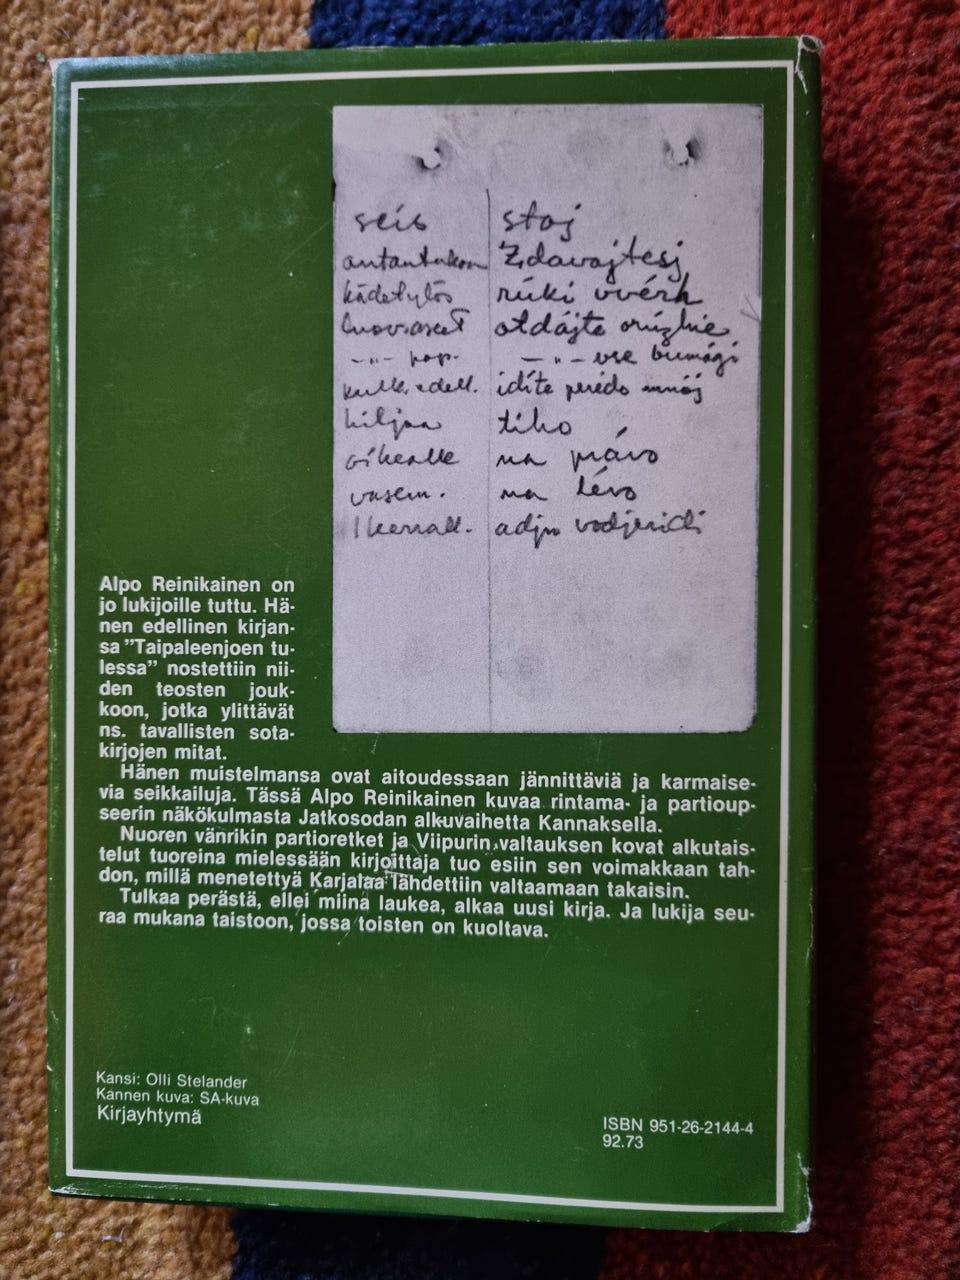 seis stoj
antautukaa Zdavajtesj
kädet ylös rúki vvérh
luov. aseet otdájte orúzhie
— " — pap. — " — vse bumági
kulk. edell. idíte perédo mnój
hiljaa tiho
oikealle na právo
vasem. na lévo
1 kerrall.
Alpo Reinikainen on
jo lukijoille tuttu. Hä-
nen edellinen kirjan-
sa "Taipaleenjoen tu-
lessa" nostettiin nii-
den teosten jouk-
koon, jotka ylittävät
ns. tavallisten sota-
kirjojen mitat.
Hänen muistelmansa ovat aitoudessaan jännittäviä ja karmaise-
via seikkailuja. Tässä Alpo Reinikainen kuvaa rintama- ja partioup-
seerin näkökulmasta Jatkosodan alkuvaihetta Kannaksella.
Nuoren vänrikin partioretket ja Viipurin valtauksen kovat alkutais-
telut tuoreina mielessään kirjoittaja tuo esiin sen voimakkaan tah-
don, millä menetettyä Karjalaa lähdettiin valtaamaan takaisin.
Tulkaa perästä, ellei miina laukea, alkaa uusi kirja. Ja lukija seu-
raa mukana taistoon, jossa toisten on kuoltava.
Kansi: Olli Stelander
Kannen kuva: SA-kuva
Kirjayhtymä
ISBN 951-26-2144-4
92.73